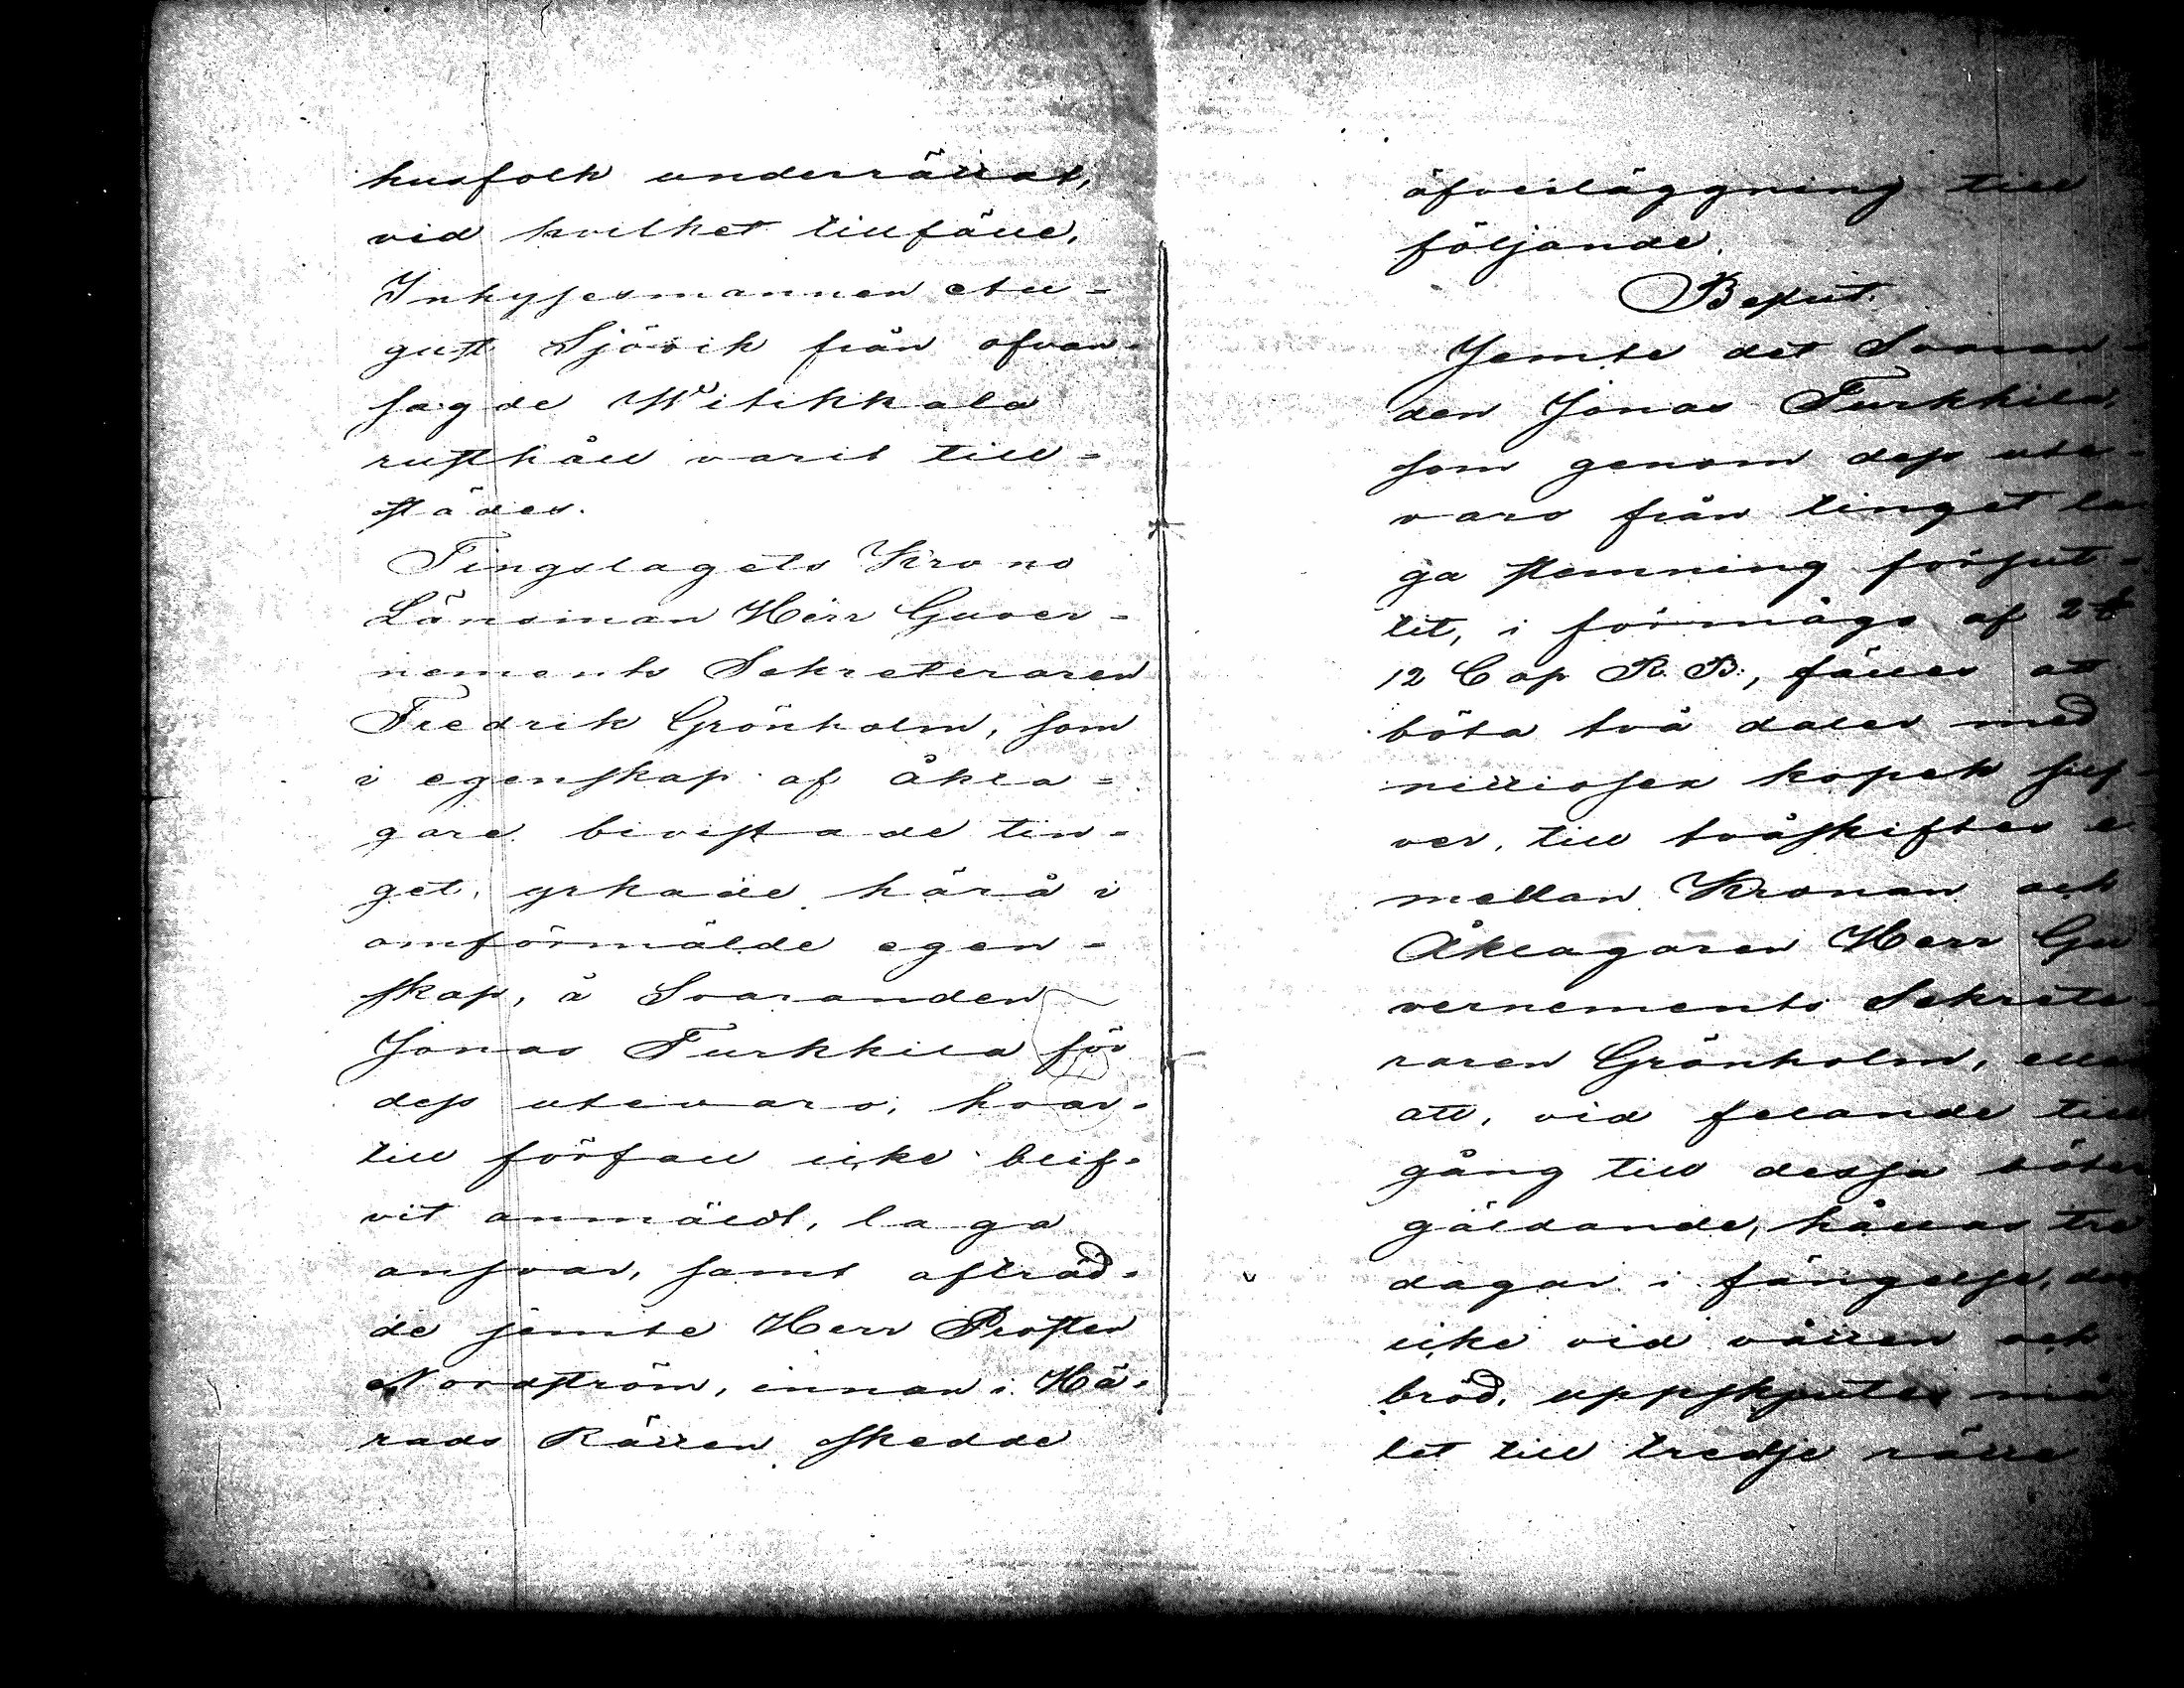 husfolk underrättat,
vid hvilket tillfälle,
Inhysesmannen Au-
gust Sjövik från ofvan-
sagde Witikkala
rusthåll varit till-
städes.
Tingslagets Krono
Länsman Herr Guver-
nements Sekreteraren
Fredrik Grönholm, som
i egenskap af åkla-
gare bivistade tin-
get, yrkade härå i
omförmälde egen-
skap, å Svaranden
Jonas Turkkila för
dess utevaro, hvar-
till förfall icke blif-
vit anmäldt, laga
ansvar, samt afträd-
de jemte Herr Prosten
Nordström, innan i Hä-
rads Rätten skedde
öfverläggning till
följande.
Beslut.
Jemte det Svaran-
den Jonas Turkkila,
som genom dess ute-
varo från tinget la
ga stemning försut-
tit, i förmågo af 2 §
12 Cap R. B:, fälles at
böta två daler med
nittiosex kopek silf-
ver, till tvåskiftes e
mellan Kronan och
Åklagaren Herr Gu
vernements Sekrete-
raren Grönholm, eller
att, vid felande till
gång till dessa böter
gäldande, hållas tre
dagar i fängelse, dock
icke vid vatten och
bröd, uppskjutes må
let till tredje rätte